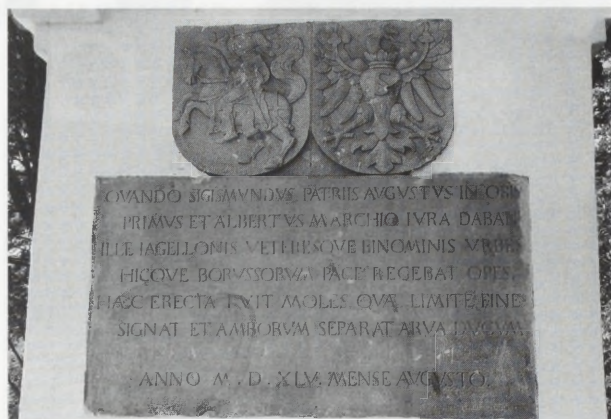 QVANDO SIGISMVNDVS PATRIIS AVGVSTVS IN ORIS
PRIMVS ET ALBERTVS MARCHIO IVRA DABAN
ILLE IAGELLONIS VETERESQVE BINOMINIS VRBES
HICQVE BORVSSORVM PACE REGEBAT OPES
HÆC ERECTA FVIT MOLES QVÆ LIMITE FINE
SIGNAT ET AMBORVM SEPARAT ARVA DVCVM
ANNO M . D . XLV. MENSE AVGVSTO.